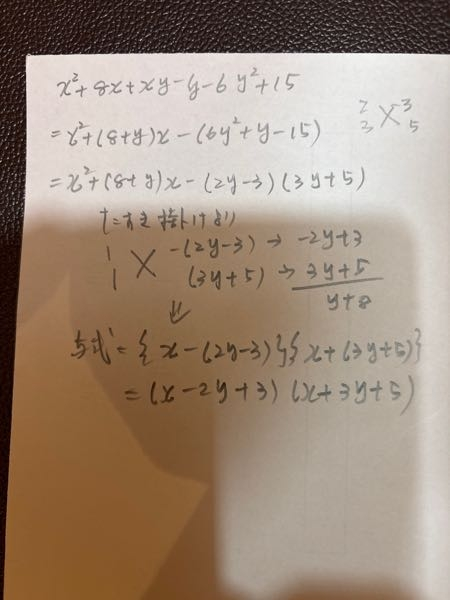 x²+8x+xy-y-6y²+15
=x²+(8+y)x-(6y²+y-15)
2 3
3 5
=x²+(8+y)x-(2y-3)(3y+5)
たすき掛けより
1 -(2y-3) → -2y+3
1 (3y+5) → 3y+5
y+8
⇓
与式={x-(2y-3)}{x+(3y+5)}
=(x-2y+3)(x+3y+5)